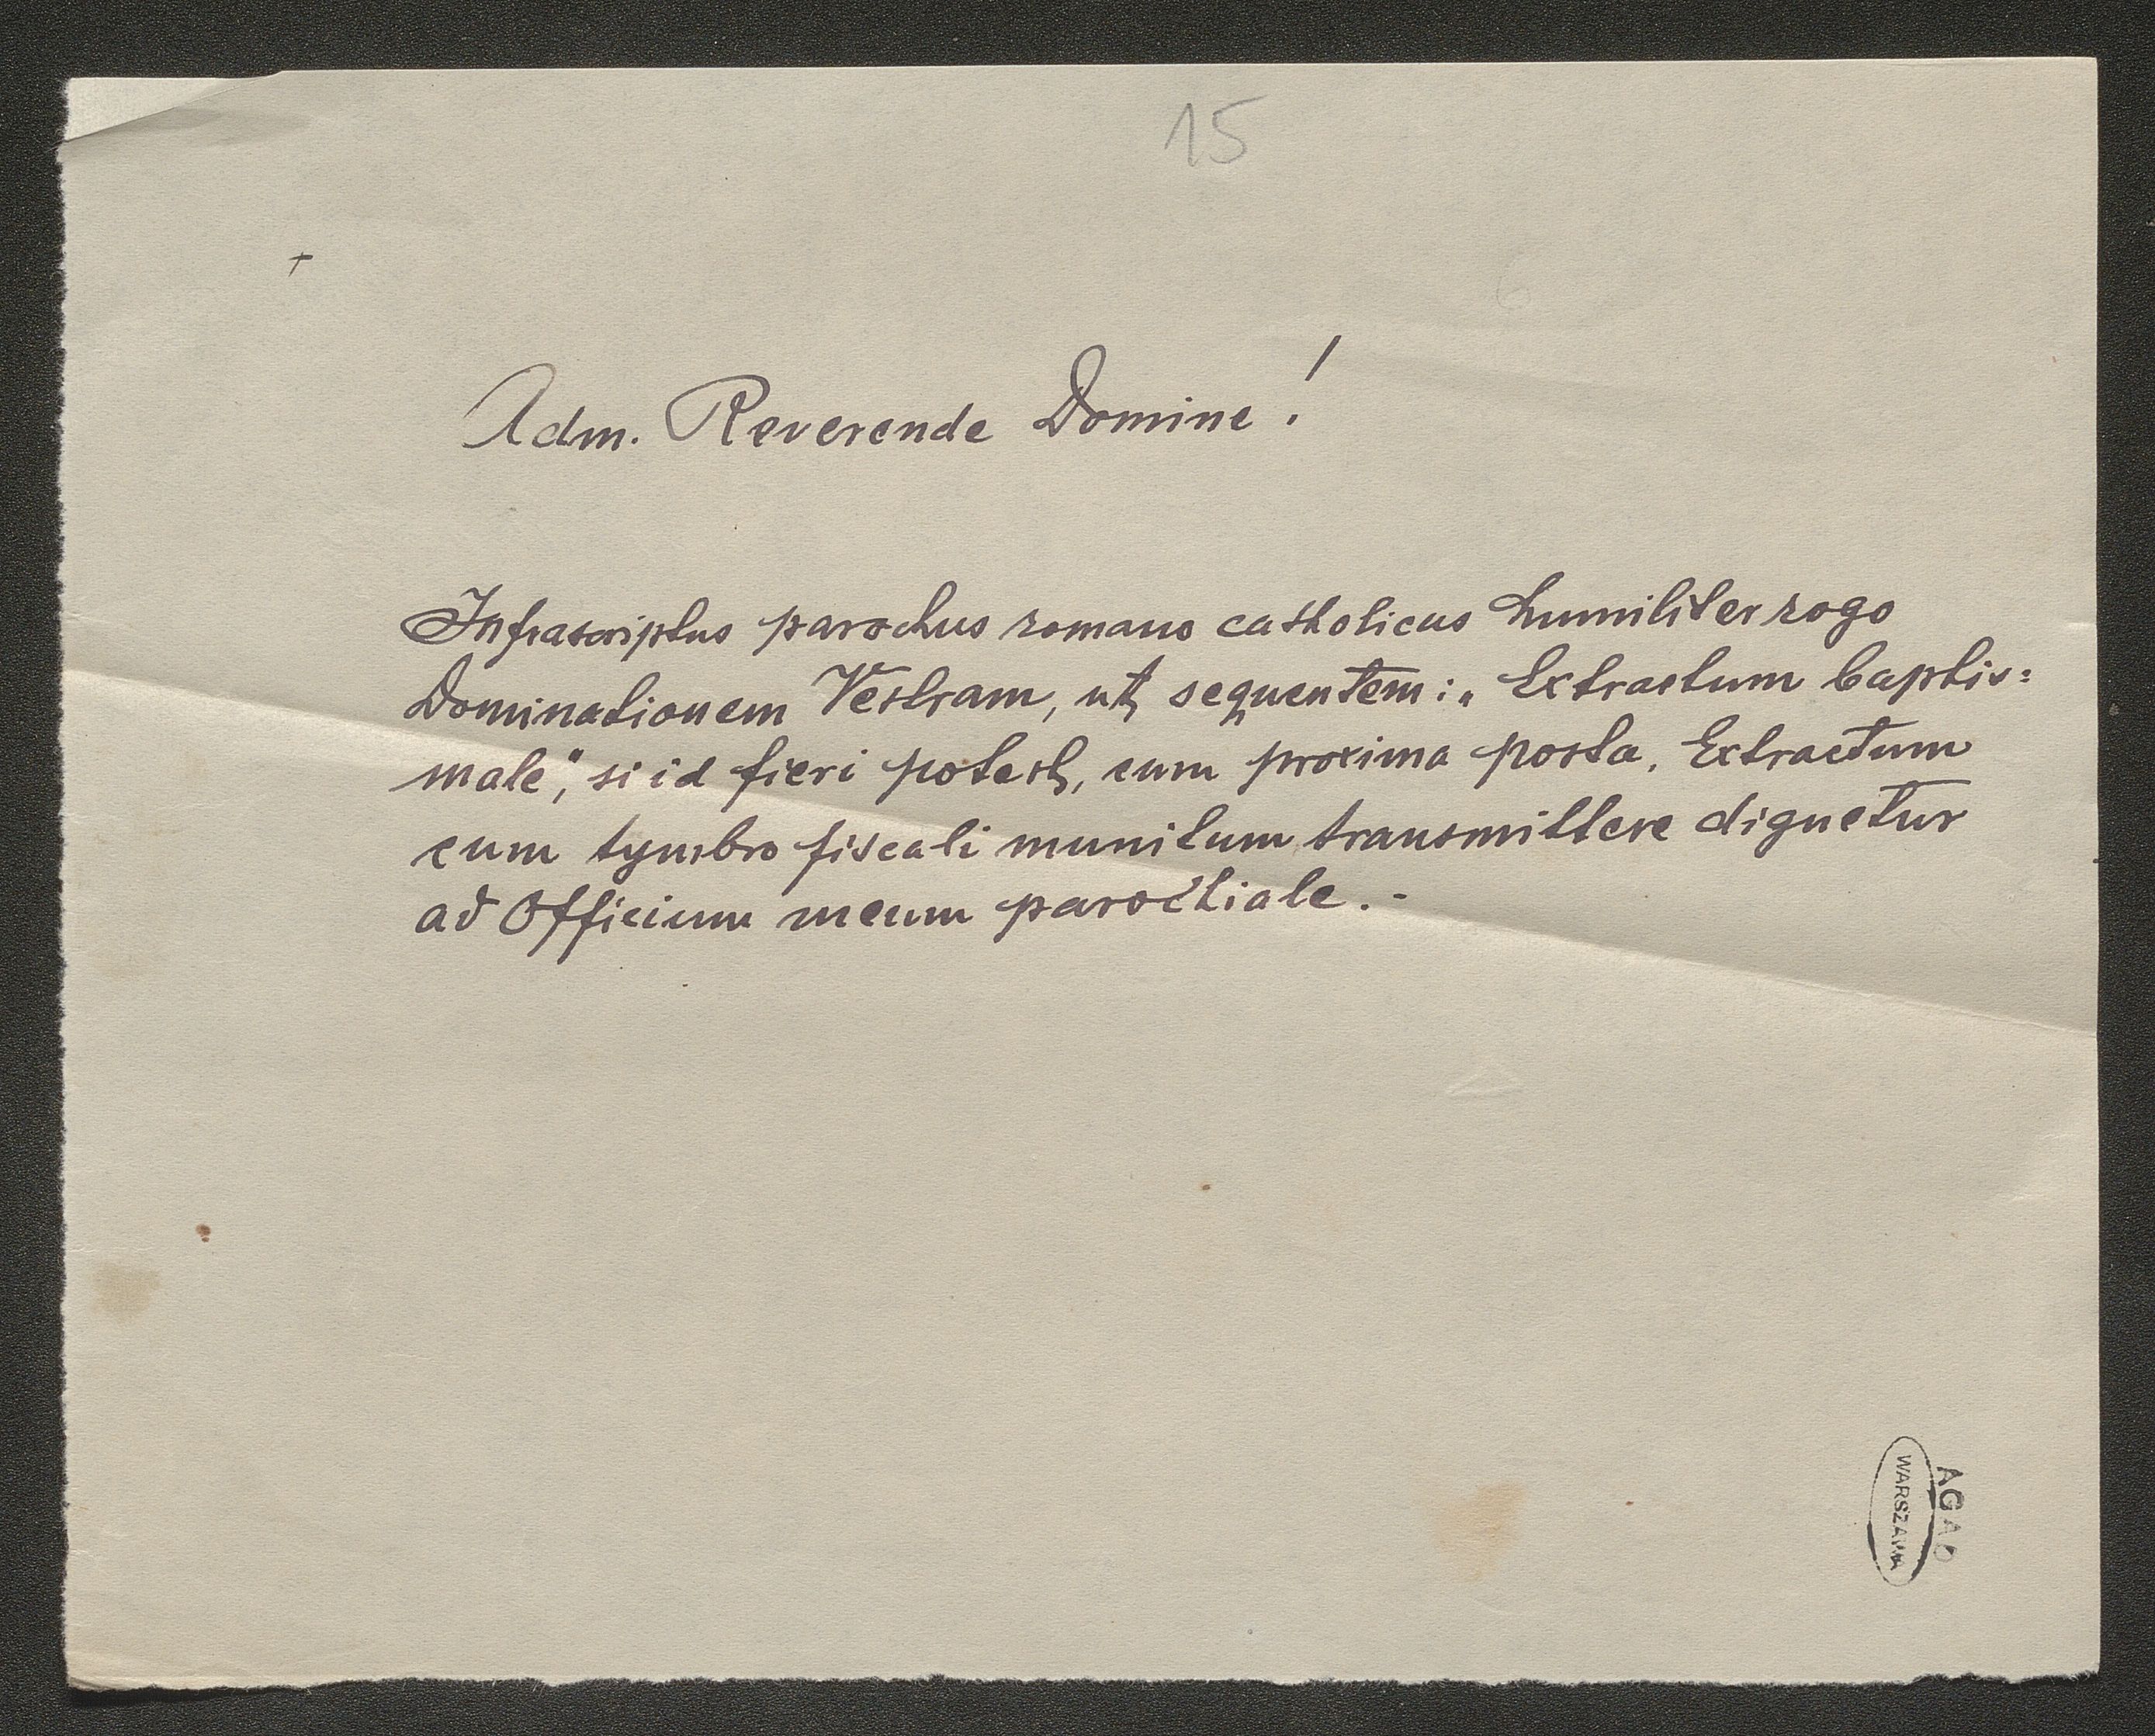 15
Adm. Reverende Domine!
Infrascriptus parochus romano catholicus humiliter rogo
Dominationem Vestram, ut, sequentem: „Extractum baptis=
male", si id fieri potest, cum proxima posta. Extractum
cum tymbro fiscali munitum transmittere dignetur
ad Officium meum parochiale.-
AGAD
WARSZAWA